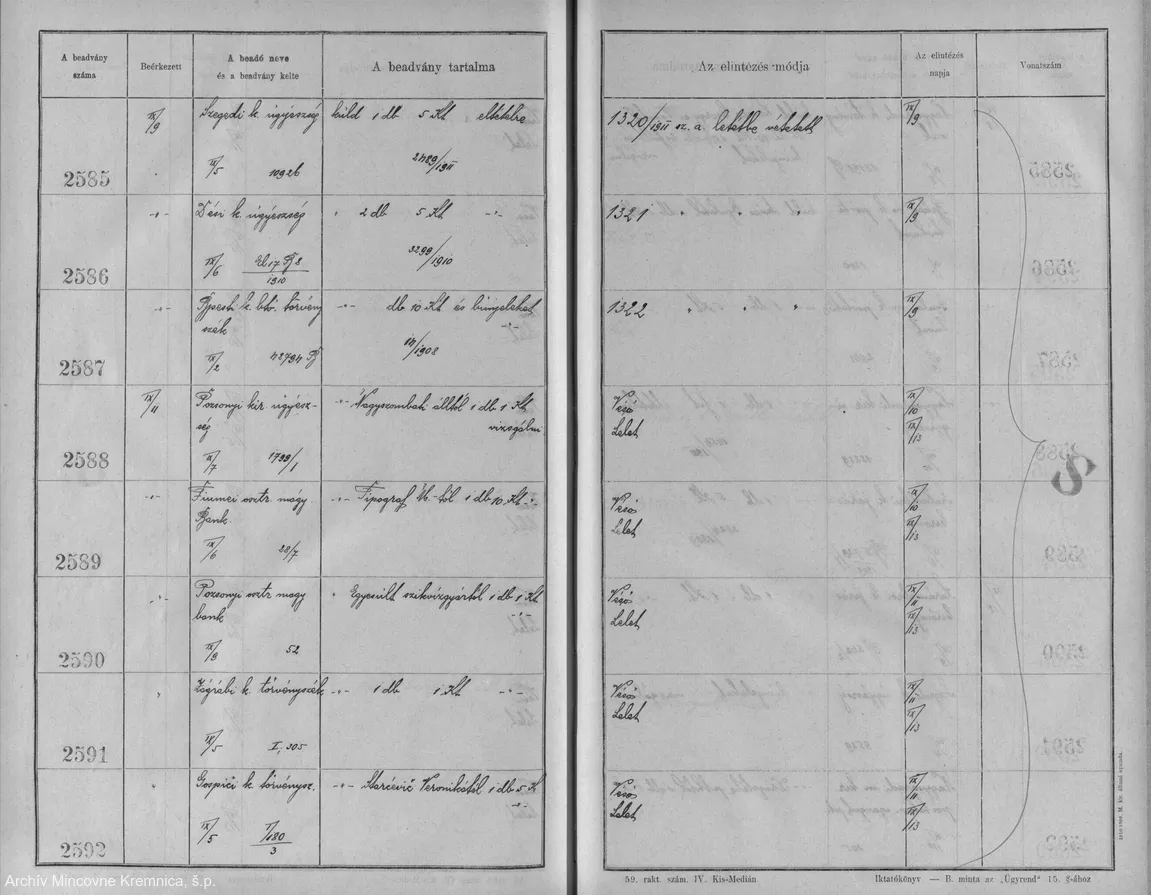 A beadvány száma
Beérkezett
A beadó neve és a beadvány kelte
A beadvány tartalma
Az elintézés módja
Az elintézés napja
Vonatszám
2585
IX/9
Szegedi k. ügyészség
IX/5 10926
küld 1 db 5 Kt eltételre
2489/1911
1320/1911 sz. a. letétbe vétetett
IX/9
2586
-"-
Dési k. ügyészség
IX/6
1910
" 2 db 5 Kt -"-
3299/1910
1321 " " "
IX/9
2587
-"-
Bpesti k. btő. törvény
szék
IX/2 42794
-"- db 10 Kt és bünjeleket
14/1908
1322 " " "
IX/9
2588
IX/11
Pozsonyi kir. ügyész-
ség
IX/7 1799/1
-"- Nagyszombati álltól 1 db 1 Kt
vizsgálni
Véső
Lelet
IX/10
IX/13
2589
-"-
Fiumei osztr. magy.
Bank.
IX/6 28/7
-"- Tipograf 1 db 10 Kt -"-
Véső
Lelet
IX/10
IX/13
2590
-"-
Pozsonyi osztr. magy
bank
IX/9 52
" Egyesült szikvizgyártól 1 db 1 Kt
-"-
Véső
Lelet
IX/11
IX/13
2591
"
Zágrábi k. törvényszék
IX/5 I. 305
-"- 1 db 1 Kt -"-
Véső
Lelet
IX/11
IX/13
2592
"
Gospići k. törvénysz.
IX/5 180/3
-"- Starčević Veronikától 1 db 5 Kt
-"-
Véső
Lelet
IX/11
IX/13
8
59. rakt. szám. IV. Kis-Medián
Iktatókönyv — B. minta az „Ügyrend" 15. §-ához
Archív Mincovne Kremnica, š.p.